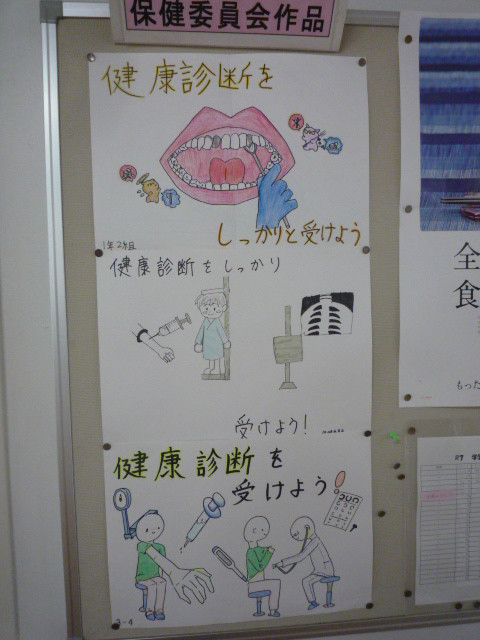 保健委員会作品
健康診断を
しっかりと受けよう
1年2組
健康診断をしっかり
受けよう!
健康診断を
受けよう
2-4
全
食
もった